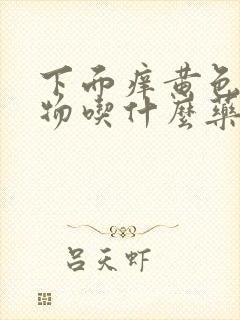 下而痒黄色
物喫什麼藥
吕天虾